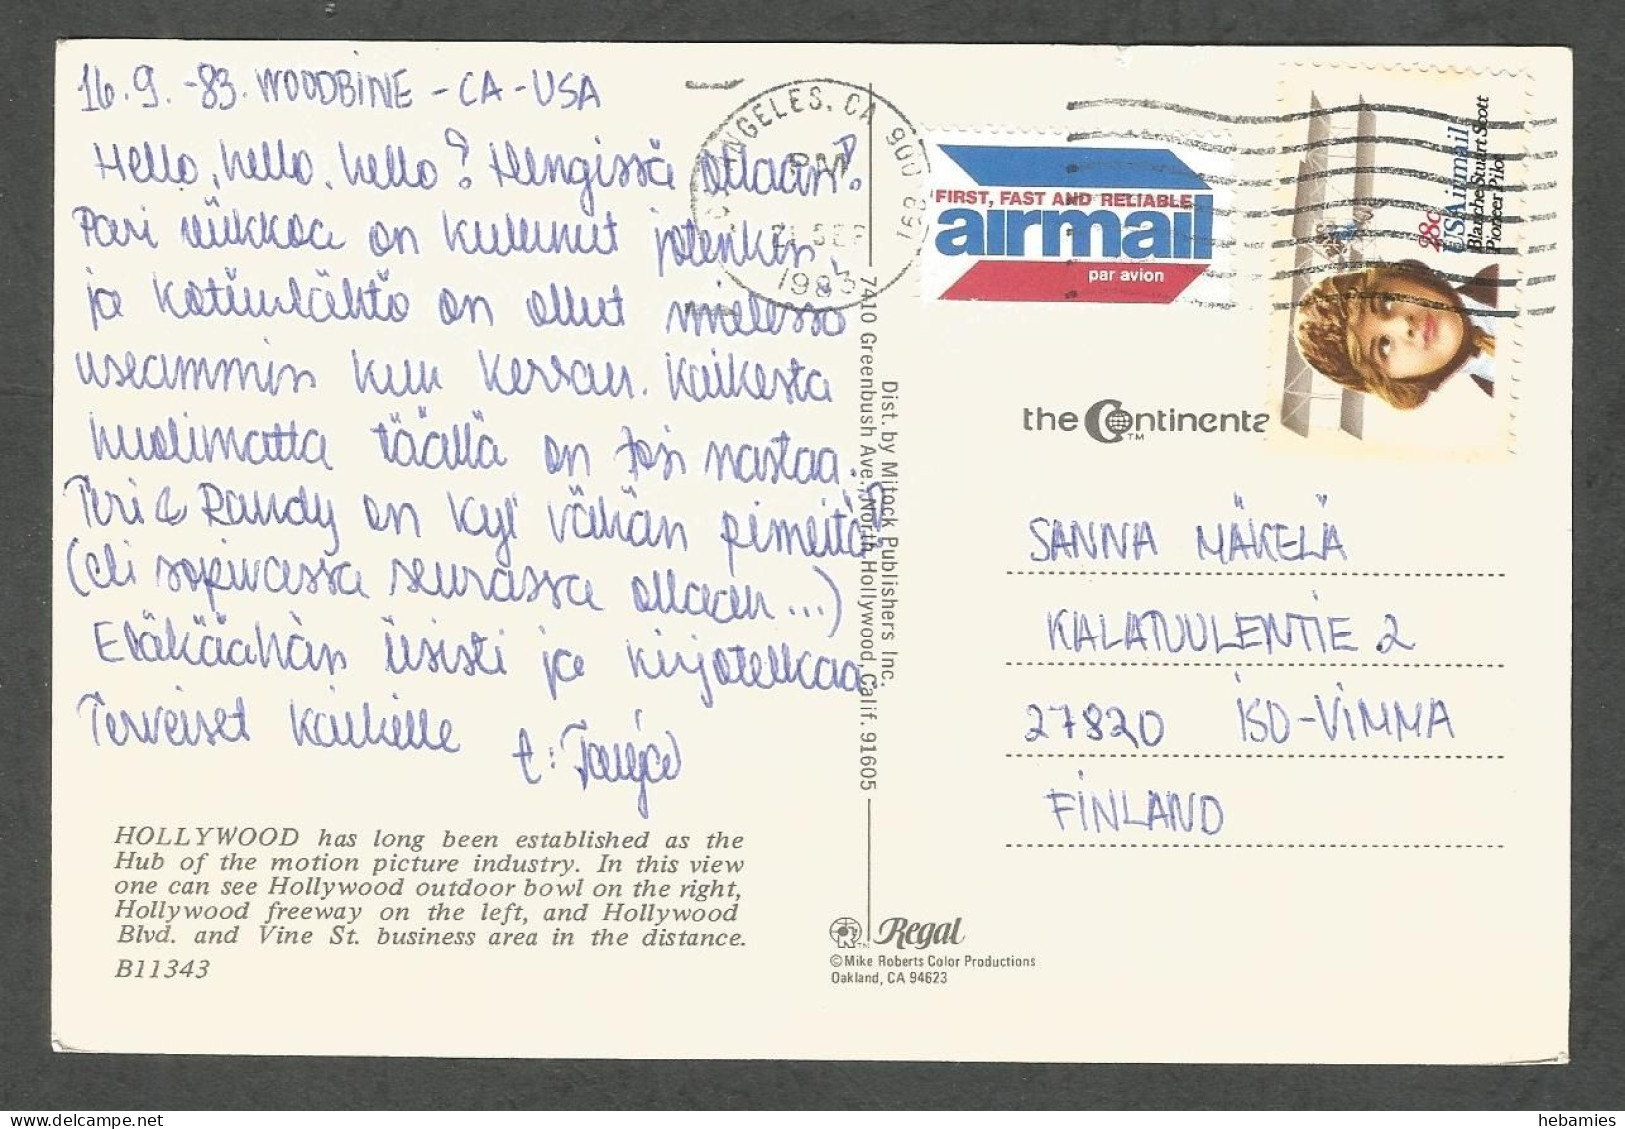 16.9.-83. WOODBINE - CA - USA
Hello, hello, hello? Hengissä ollaan!
Pari viikkoa on kulunut jotenkin,
ja kotiinlähtö on ollut mielessä
useammin kun kerran. Kaikesta
huolimatta täällä on tosi mastaa.
Teri & Randy on kyl vähän pimeitä
(eli sopivassa seurassa ollaan...)
Eläkäähän iisisti ja kirjotelkaa
Terveiset kaikille t: Tanja
HOLLYWOOD has long been established as the
Hub of the motion picture industry. In this view
one can see Hollywood outdoor bowl on the right,
Hollywood freeway on the left, and Hollywood
Blvd. and Vine St. business area in the distance.
B11343
Dist. by Mitock Publishers Inc.
7410 Greenbush Ave., North Hollywood, Calif. 91605
Regal
©Mike Roberts Color Productions
Oakland, CA 94623
ANGELES, CA 900
PM
21 SEP
1983
FIRST, FAST AND RELIABLE
airmail
par avion
28c
USAirmail
Blanche Stuart Scott
Pioneer Pilot
the Continental
TM
SANNA MÄKELÄ
KALATUULENTIE 2
27820 ISO-VIMMA
FINLAND
hebamies